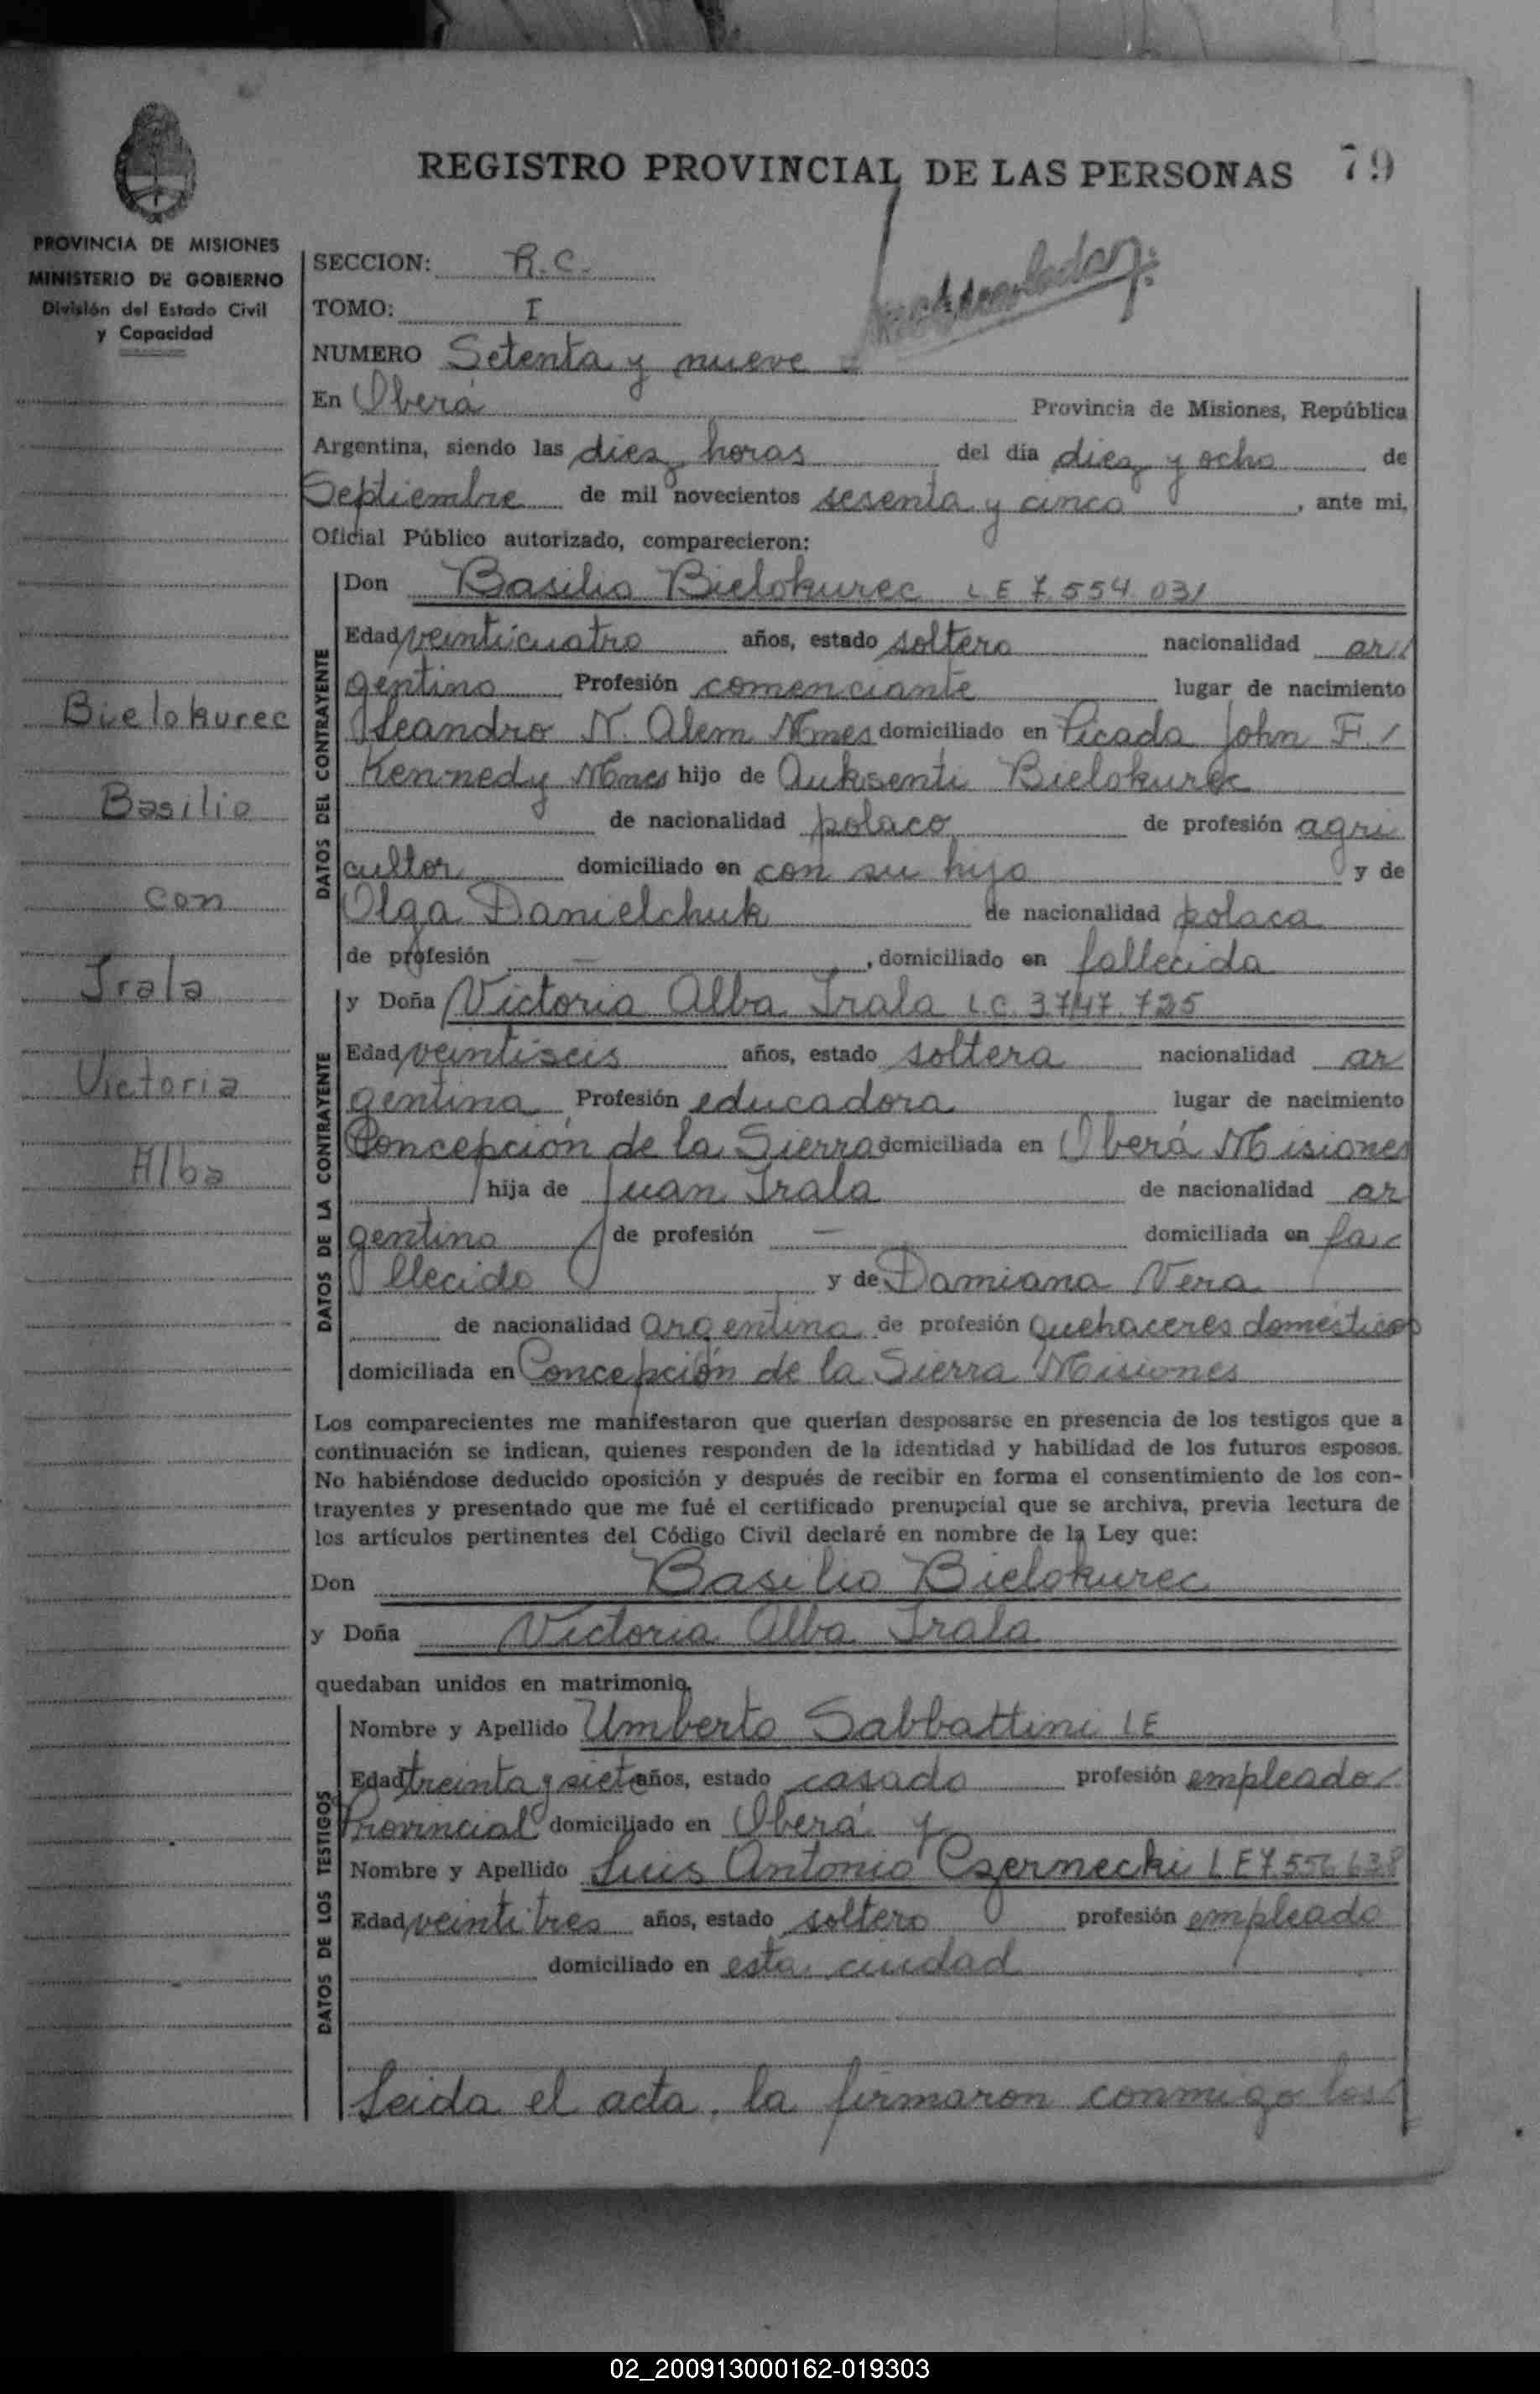 REGISTRO PROVINCIAL DE LAS PERSONAS 79
PROVINCIA DE MISIONES
MINISTERIO DE GOBIERNO
División del Estado Civil
y Capacidad
Bielokurec
Basilio
con
Irala
Victoria
Alba
SECCION: R.C.
TOMO: I
NUMERO Setenta y nueve
En Oberá Provincia de Misiones, República
Argentina, siendo las diez horas del día diez y ocho de
Septiembre de mil novecientos sesenta y cinco, ante mi,
Oficial Público autorizado, comparecieron:
DATOS DEL CONTRAYENTE
Don Basilio Bielokurec L E 7.554.031
Edad veinticuatro años, estado soltero nacionalidad ar
gentino Profesión comerciante lugar de nacimiento
Leandro N. Alem Mnes domiciliado en Picada John F.
Kennedy Mnes hijo de Auksenti Bielokurec
de nacionalidad polaco de profesión agri
cultor domiciliado en con su hijo y de
Olga Danielchuk de nacionalidad polaca
de profesión —, domiciliado en fallecida
DATOS DE LA CONTRAYENTE
y Doña Victoria Alba Irala L.C. 3.747.725
Edad veintiseis años, estado soltera nacionalidad ar
gentina Profesión educadora lugar de nacimiento
Concepción de la Sierra domiciliada en Oberá Misiones
hija de Juan Irala de nacionalidad ar
gentino de profesión — domiciliada en fa
llecido y de Damiana Vera
de nacionalidad argentina de profesión quehaceres domésticos
domiciliada en Concepción de la Sierra Misiones
Los comparecientes me manifestaron que querían desposarse en presencia de los testigos que a
continuación se indican, quienes responden de la identidad y habilidad de los futuros esposos.
No habiéndose deducido oposición y después de recibir en forma el consentimiento de los con-
trayentes y presentado que me fué el certificado prenupcial que se archiva, previa lectura de
los artículos pertinentes del Código Civil declaré en nombre de la Ley que:
Don Basilio Bielokurec
y Doña Victoria Alba Irala
quedaban unidos en matrimonio.
DATOS DE LOS TESTIGOS
Nombre y Apellido Umberto Sabbattini LE
Edad treinta y siete años, estado casado profesión empleado
Provincial domiciliado en Oberá y
Nombre y Apellido Luis Antonio Czernecki L E 7.556.638
Edad veintitres años, estado soltero profesión empleado
domiciliado en esta ciudad
Leida el acta, la firmaron conmigo los
02_200913000162-019303